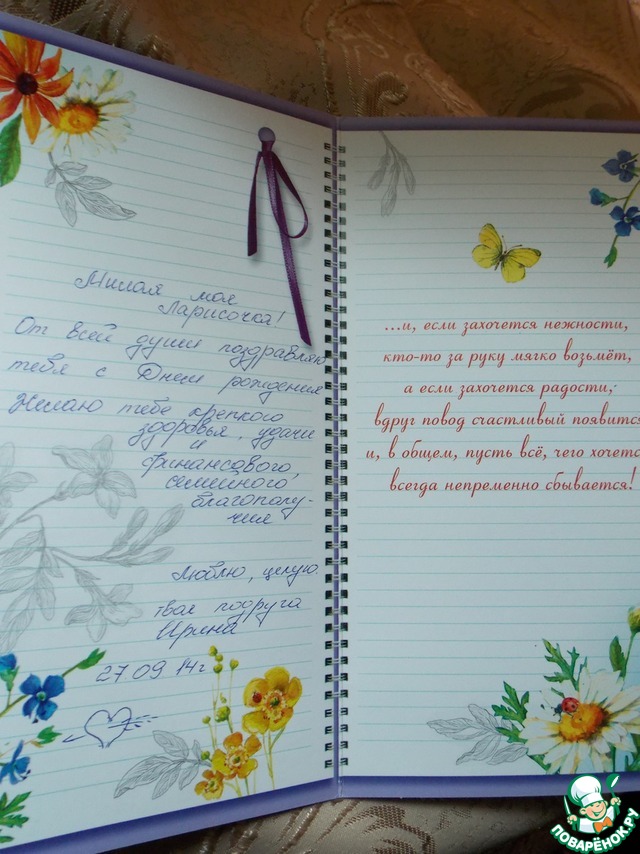 Милая моя
Ларисочка!
От всей души поздравляю
тебя с Днем рождения
Желаю тебе крепкого
здоровья, удачи
и
финансового,
семейного
благополу-
чия
Люблю, целую.
твоя подруга
Ирина
27 09 14г
...и, если захочется нежности,
кто-то за руку мягко возьмёт,
а если захочется радости,
вдруг повод счастливый появится
и, в общем, пусть всё, чего хочетс
всегда непременно сбывается!
ПОВАРЁНОК.РУ